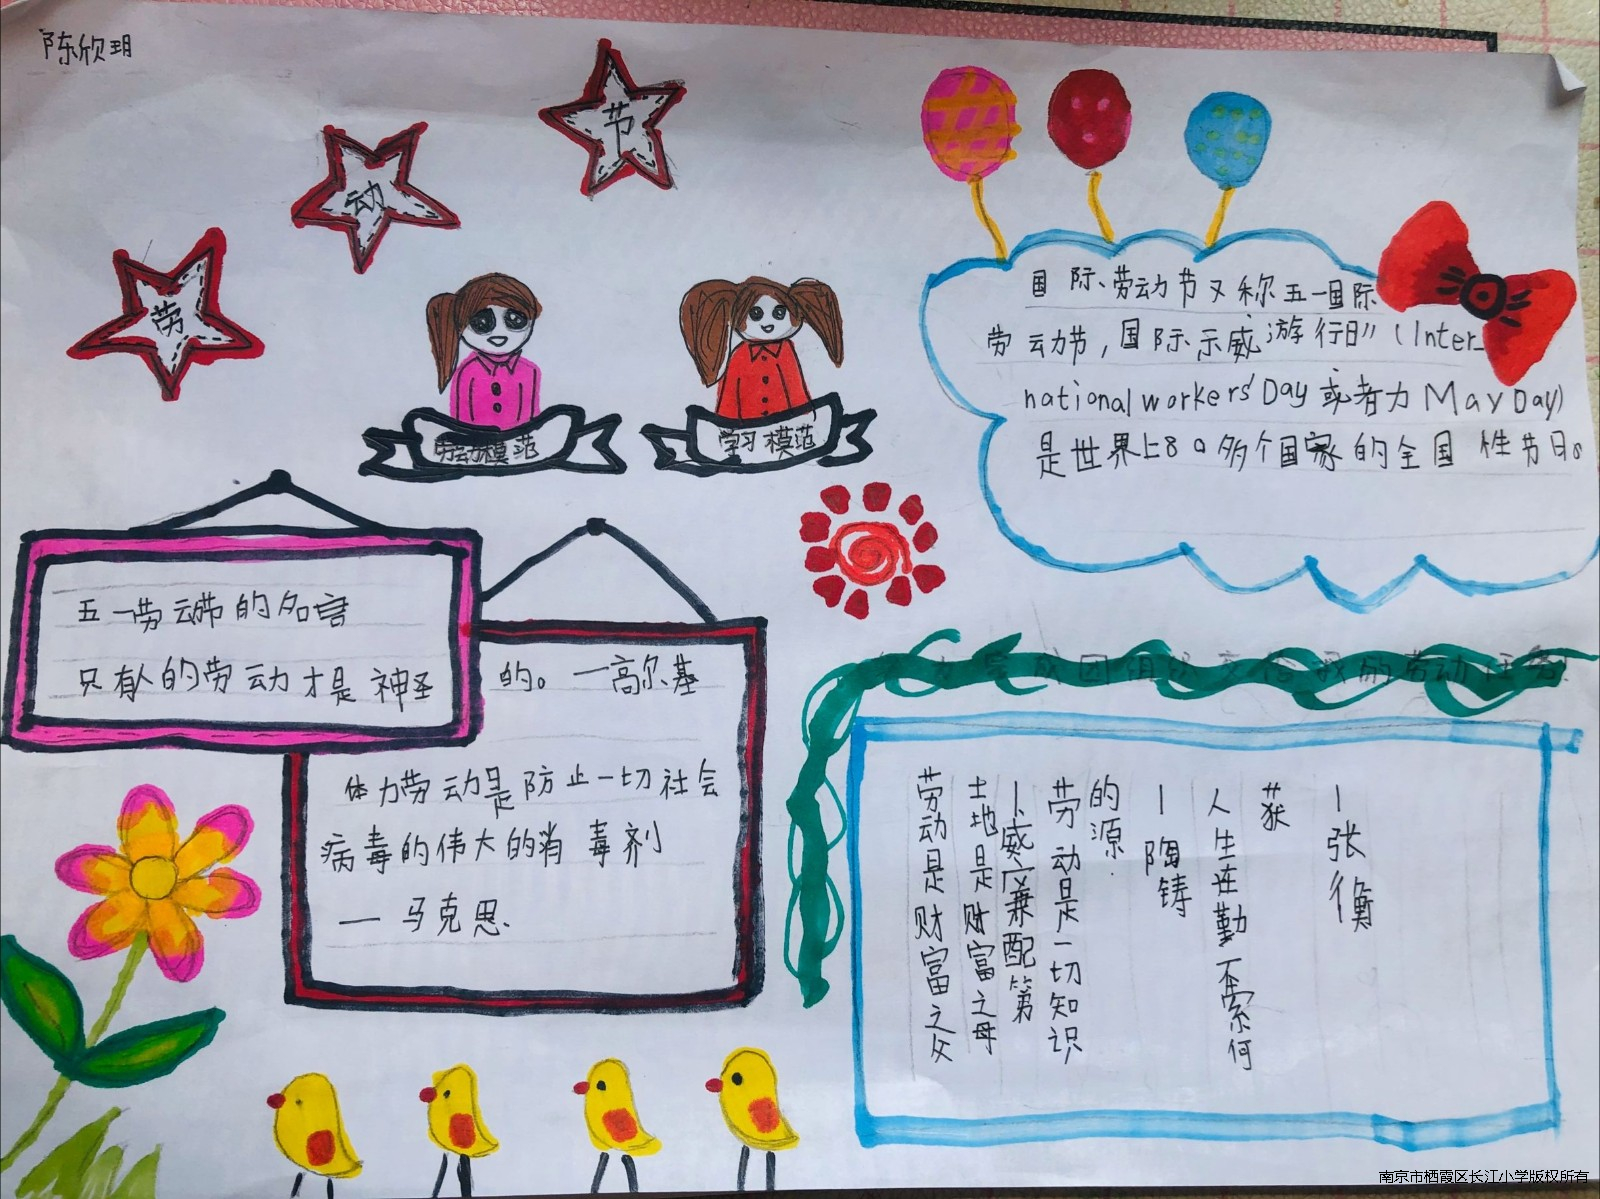 陈欣玥
劳动节
劳动模范
学习模范
国际劳动节又称五一国际
劳动节，国际示威游行日》（Inter-
nationalworkers'Day或者力May Day）
是世界上80多个国家的全国性节日。
五一劳动节的名言
只有人的劳动才是神圣
的。一高尔基
体力劳动是防止一切社会
病毒的伟大的消毒剂
— 马克思.
成团组织交给我的劳动任务
劳动是财富之父
土地是财富之母
—威廉配第
劳动是一切知识
的源.
—陶铸
人生在勤不索何
获
—张衡
南京市栖霞区长江小学版权所有